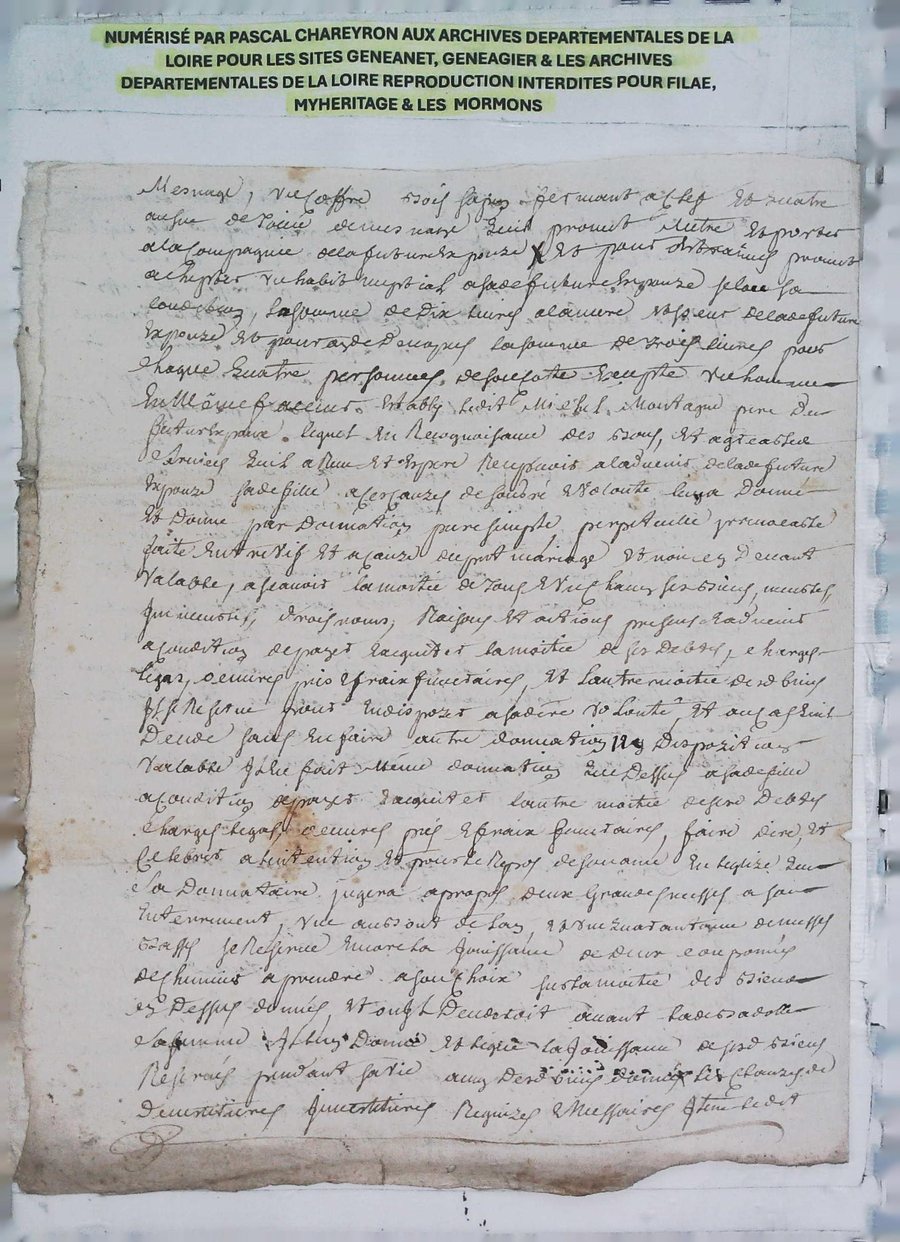 NUMÉRISÉ PAR PASCAL CHAREYRON AUX ARCHIVES DEPARTEMENTALES DE LA
LOIRE POUR LES SITES GENEANET, GENEAGIER & LES ARCHIVES
DEPARTEMENTALES DE LA LOIRE REPRODUCTION INTERDITES POUR FILAE,
MYHERITAGE & LES MORMONS
Mesnage, un coffre bois sapin fermant a clef Et quatre
de promet Metre Et porter
a la Compagnie de la future Expouze X Et pour promet
un habit nuptial a sade future Expouze selon sa
condition, la somme de Dix livres a la mere de lade future
Expouze Et pour la somme de trois livres pour
chaque quatre personnes, de son coste un homme
En Mesme f Establi ledit Michel Montagne pere Du
futur Expoux, lequel En Recognoissance des bons, Et agreables
services quil a Receu Et Espere Recepvoir a ladvenir de lade future
Expouze sade fille a ces cauzes de son gré & volonte luy a Donné
Et Donne par Donnation pure simple perpetuelle irrevocable
faite Entre vifs Et a cauze du pnt mariage Et
valable, a scavoir la moitie de tous & uns chacuns ses biens, meubles,
Immeubles, droits noms, Raisons Et actions presens & advenir
a condition de payer & acquiter la moitie de ses Debtes, charges
legas, oeuvres pies & fraix funeraires, Et l'autre moitie desd biens
Il se Reserve pour En dispozer a sa dere volonté, Et au cas quil
Decede sans En faire autre donnation ny Dispozition
valable Il En fait Meme donnation que Dessus a sade fille
a condition de payer & acquiter l'autre moitie de sesd Debtes
charges legas, oeuvres pies & fraix funeraires, faire dire, Et
Celebrer a son intention Et pour le Repos de son ame En leglize que
la Donnataire jugera a propos deux Grandes messes a son
Enterrement, une au bout de lan, Et une quarantaine de messes
basses se Reserve Encore la Jouissance de deux
de a prendre a son choix sur la moitie des biens
cy Dessus donnés, Et ou Il Decederoit avant
sa femme Il luy Donne Et legue la Jouissance de sesd biens
Reservés pendant sa vie avec desd biens donnés les clauzes de
Devestitures Investitures Requizes & Necessaires Item ledit